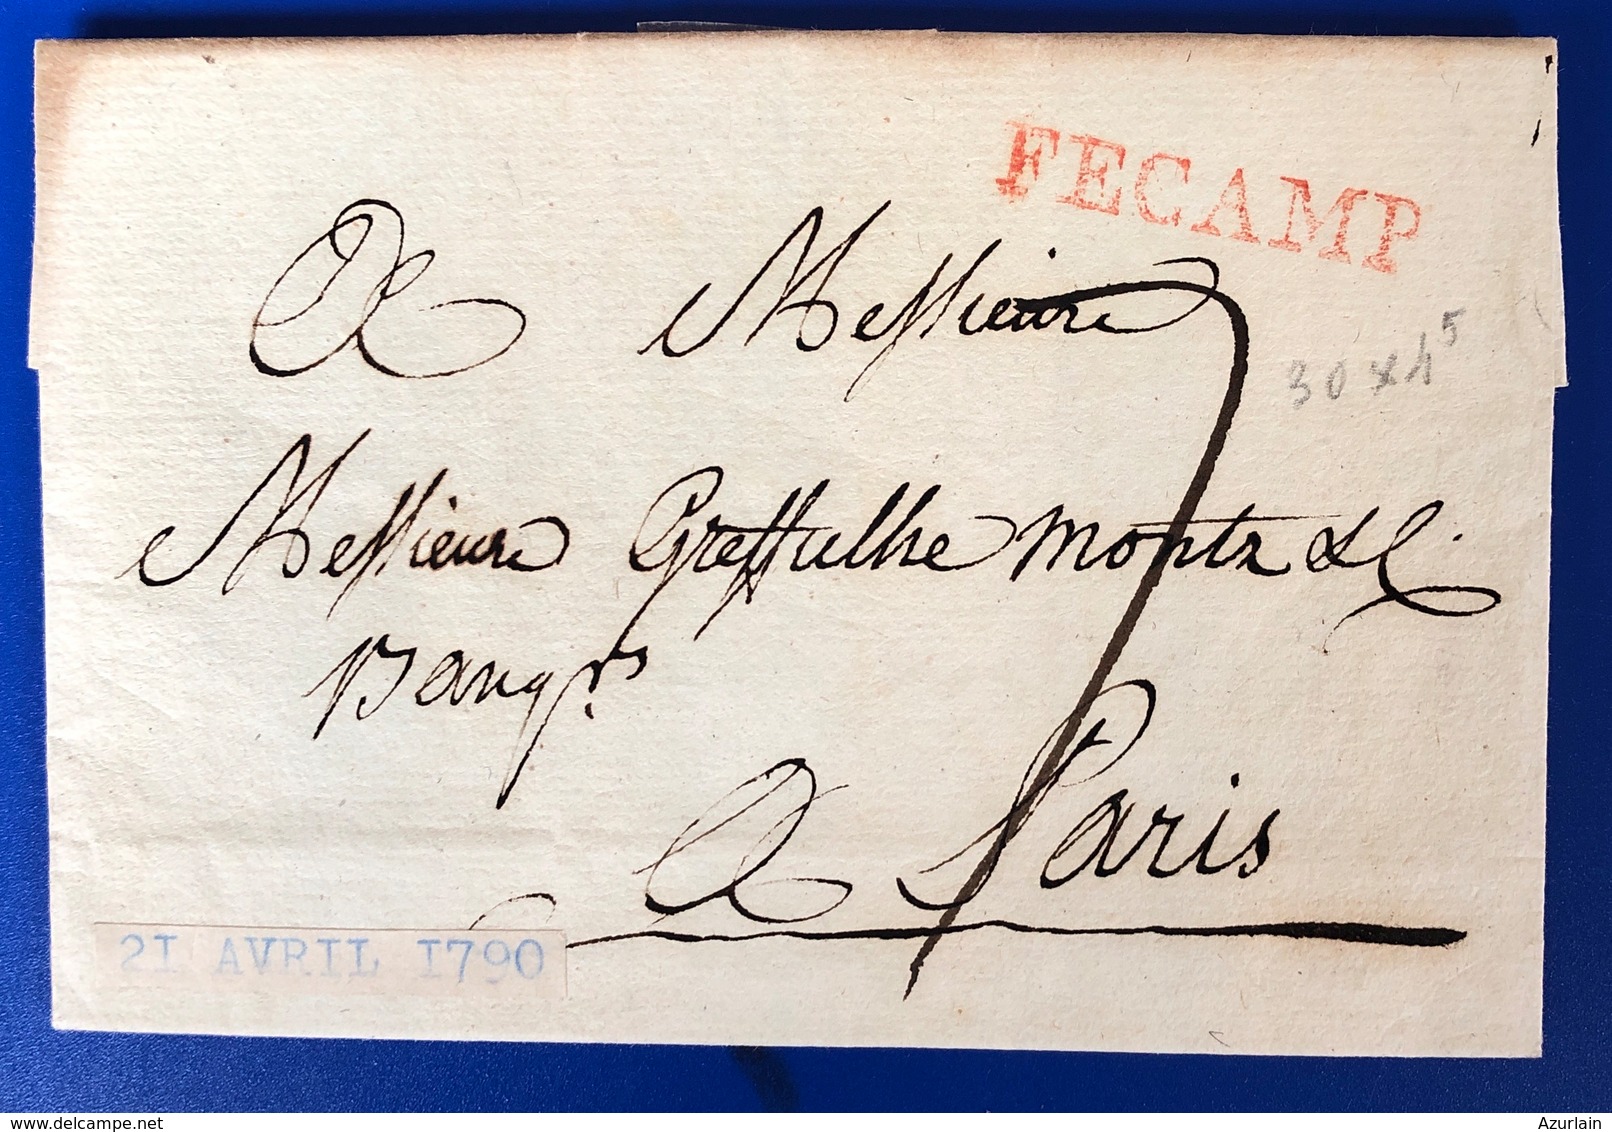 FECAMP
A Messieurs
30 x 4 5
Messieurs Greffulhe Montz & C.
Banqrs
7
A Paris
21 AVRIL 1790
delcampe.net
Azurlain